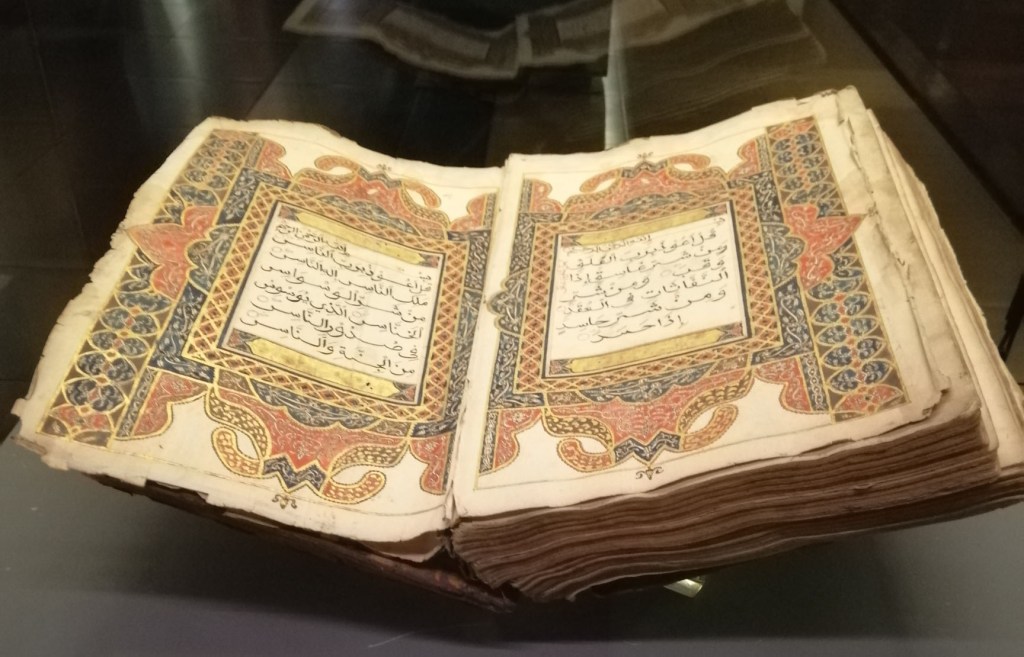 بسم الله الرحمن الرحيم
قل اعوذ برب الفلق
ومن شر غاسق اذا
وقب ومن شر
النفاثات في العقد
ومن شر حاسد
اذا حسد
بسم الله الرحمن الرحيم
قل اعوذ برب الناس
ملك الناس اله الناس
من شر الوسواس
الخناس الذي يوسوس
في صدور الناس
من الجنة والناس